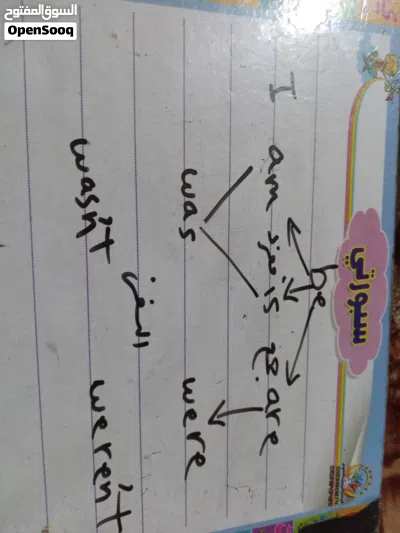 السوق المفتوح
OpenSooq
سبورتي
be
I am is are
was were
النفي
wasn't weren't